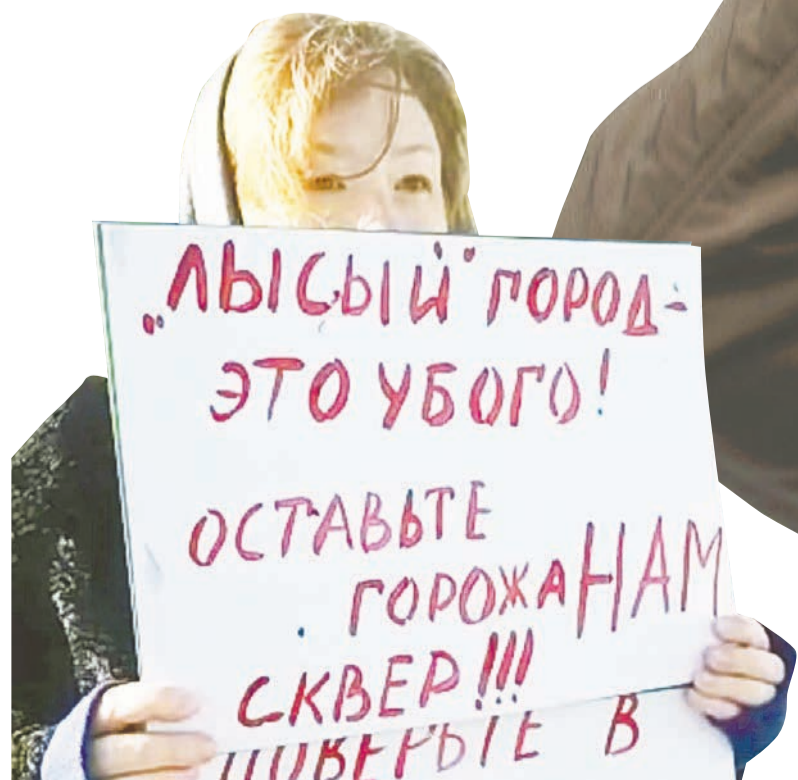 „ЛЫСЫЙ" ГОРОД-
ЭТО УБОГО!
ОСТАВЬТЕ
ГОРОЖАНАМ
СКВЕР!!!
ПОВЕРЬТЕ В